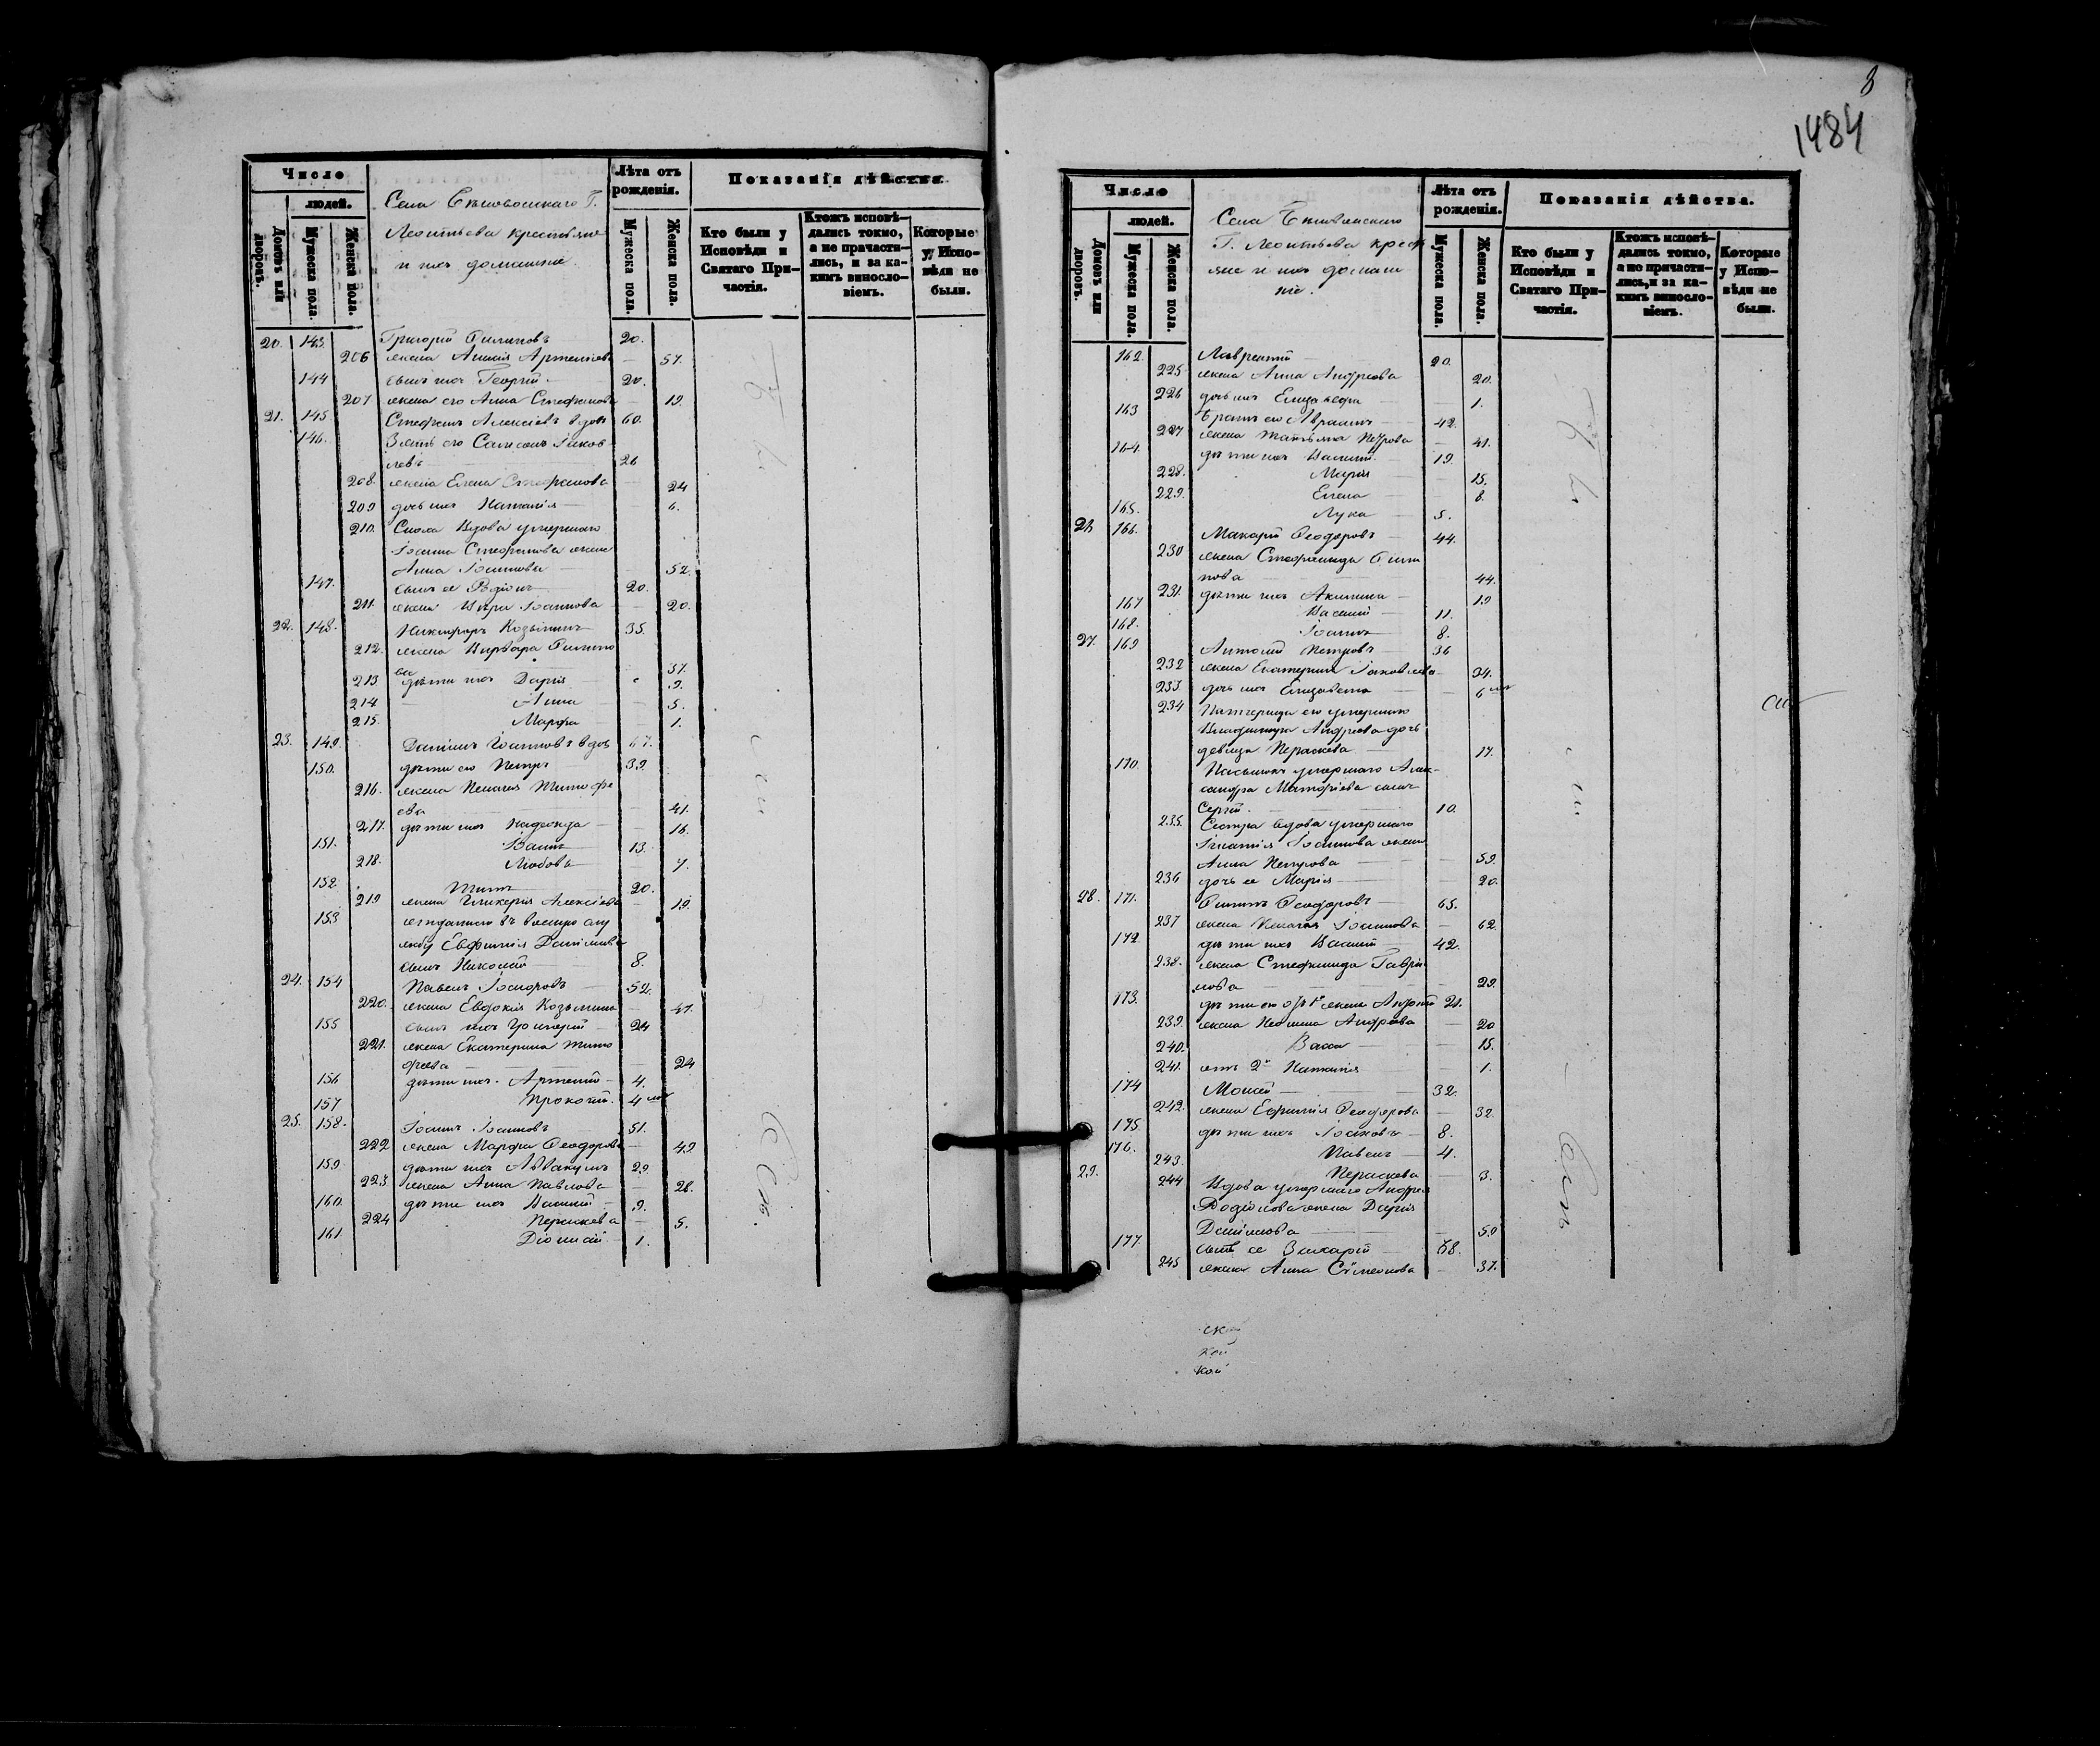 Число
людей.
Домовъ или дворовъ.
Мужеска пола.
Женска пола.
Села
Г.
Леонтьева крестьяне
и ихъ домашніе.
Лѣта отъ рожденія.
Мужеска пола.
Женска пола.
Показанія дѣйства.
Кто были у Исповѣди и Святаго Причастія.
Ктожъ исповѣдались токмо, а не причастились, и за какимъ винословіемъ.
Которые у Исповѣди не были.
20. 143. Григорій Филиповъ 20.
206 жена Артеміева 57.
144 сынъ ихъ Георгій 20.
207 жена его Анна Стефанова 19.
21. 145. Стефанъ Алексіевъ вдовъ 60.
146. Зять его Сампсонъ Іаков
левъ 26
208. жена Елена Стефанова 24
209 дочь ихъ Наталія 6.
210. Вдова умершаго
Іоанна Стефанова жена
Анна Іоаннова 52.
147. сынъ ея Родіонъ 20.
211. жена Іоаннова 20.
22. 148. Никифоръ Козьминъ 35.
212. жена Варвара Филипо
ва 37.
213 дѣти ихъ Дарія 9.
214 Анна 5.
215. Марфа 1.
23. 149. Даніилъ Іоанновъ вдов 67.
150. дѣти его Петръ 39.
216. жена Пелагея Тимофе
ева 41.
217. дѣти ихъ Надежда 16.
151. Іоаннъ 13.
218. Любовь 7.
152. Титъ 20.
219 жена Гликерія Алексіева 19.
153 отданнаго въ военную слу
жбу Евфимія Даніилова
сынъ Николай 8.
24. 154 Павелъ 52.
220. жена Евдокія Козьмина 47.
155 сынъ ихъ Григорій 24
221. жена Екатерина Тимо
феева 24
156 дѣти ихъ Артемій 4.
157 Прокопій. 4 мес
25. 158. Іоаннъ Іоанновъ 51.
222 жена Марфа Феодорова 49
159. дѣти ихъ Аввакумъ 29
223. жена Анна Павлова 28.
160. дѣти ихъ Василій 9.
224 Параскева 5.
161 Діонисій 1.
8
1484
Число
людей.
Домовъ или дворовъ.
Мужеска пола.
Женска пола.
Села
Г. Леонтьева крест
яне и ихъ домаш
ніе.
Лѣта отъ рожденія.
Мужеска пола.
Женска пола.
Показанія дѣйства.
Кто были у Исповѣди и Святаго Причастія.
Ктожъ исповѣдались токмо, а не причастились, и за какимъ винословіемъ.
Которые у Исповѣди не были.
162. Лаврентій 20.
225. жена Анна Андреева 20.
226 дочь ихъ Елизавефа 1.
163 Братъ его Авраамъ 42.
227 жена Татьяна Петрова 41.
164. дѣти ихъ Василій 19.
228. Марія 15.
229. Елена 8.
165. Лука 5.
26 166. Макарій Феодоровъ 44.
230 жена Стефанида Фили
пова 44.
231. дѣти ихъ Акилина 19
167 Василій 11.
168. Іоаннъ 8.
27. 169 Антоній Петровъ 36
232 жена Екатерина Іаковлева 34.
233. дочь ихъ Елизавета 6 мес
234 Падчерица его умершаго
Владиміра Андреева дочь
девица Пераскева 17.
170. Пасынокъ умершаго Алек-
сандра Матфіева сынъ
Сергій. 10.
235. Сестра вдова умершаго
Игнатія Іоаннова жена
Анна Петрова 59.
236 дочь ея Марія 20.
28. 171. Филипъ Феодоровъ 65.
237 жена Пелагея Іоаннова 62.
172 дѣти ихъ Василій 42.
238. жена Стефанида Гаврі
лова 29.
173. дѣти его отъ 1й жены Андрей 21.
239. жена Андреева 20
240. Васса 15.
241. отъ 2й Наталія 1.
174 Моисей 32.
242. жена Ефимія Феодорова 32.
175. дѣти ихъ Іаковъ 8.
176. Павелъ 4.
243. Пераскева 3.
29. 244 Вдова умершаго Андрея
Родіонова жена Дарія
Даніилова 59
177. сынъ ея Захарій 38.
245 жена Анна Сѵмеонова 37.
ской
кой
кой